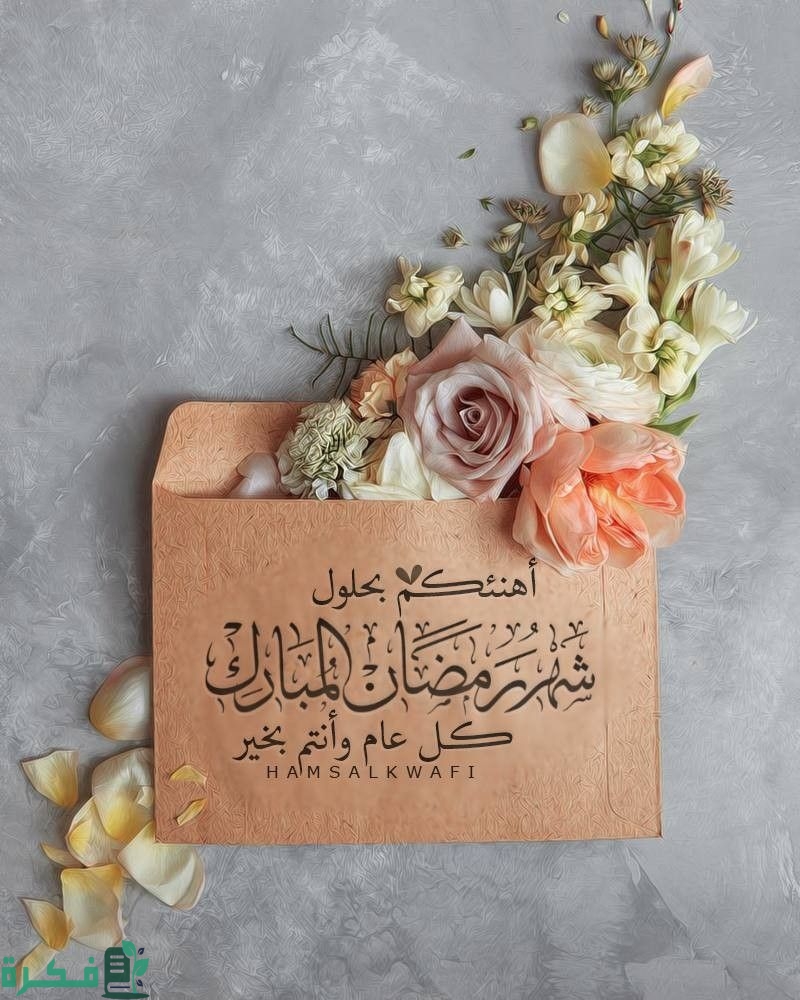 أهنئكم بحلول
شَهْرُ رَمَضَانْ المُبَارِكْ
كل عام وأنتم بخير
HAMSALKWAFI
فكرة